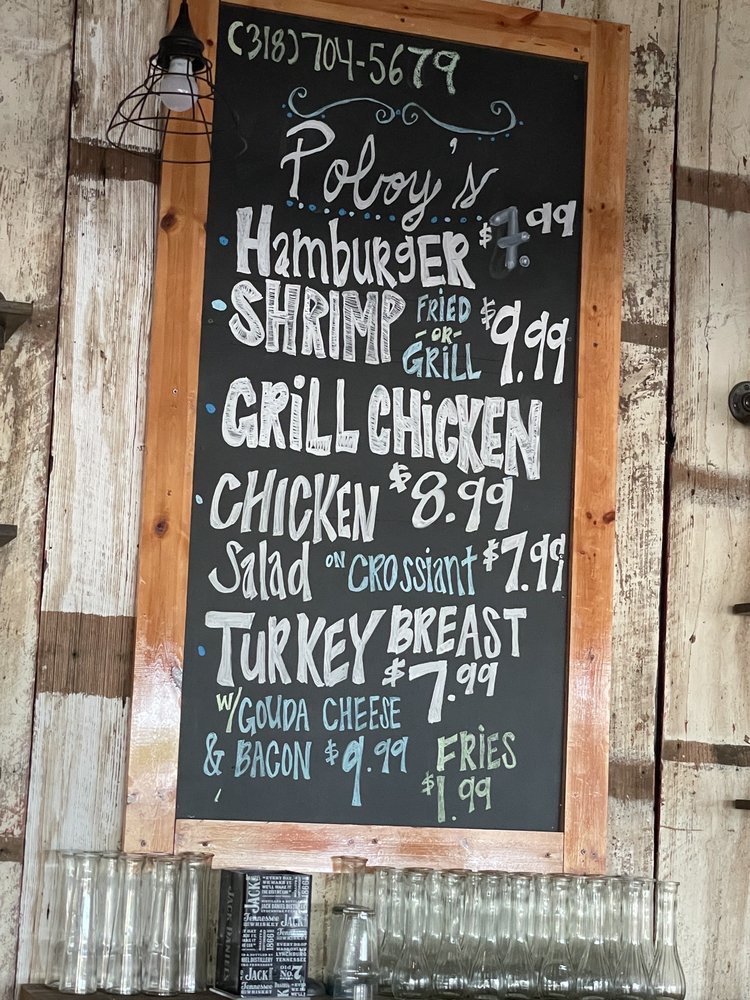 (318)704-5679
Poboy's
HamburgER $7.99
SHRIMP FRiED -OR- GRiLL $9.99
GRiLL CHiCKEN
$8.99
CHiCKEN
Salad ON CROSSiant $7.99
TURKEY BREAST
$7.99
W/GOUDA CHEESE
& BACON $9.99
FRiES
$1.99
JACK DANIEL'S
JACK
Tennessee
WHISKEY
1866
JACK
Old
No.7